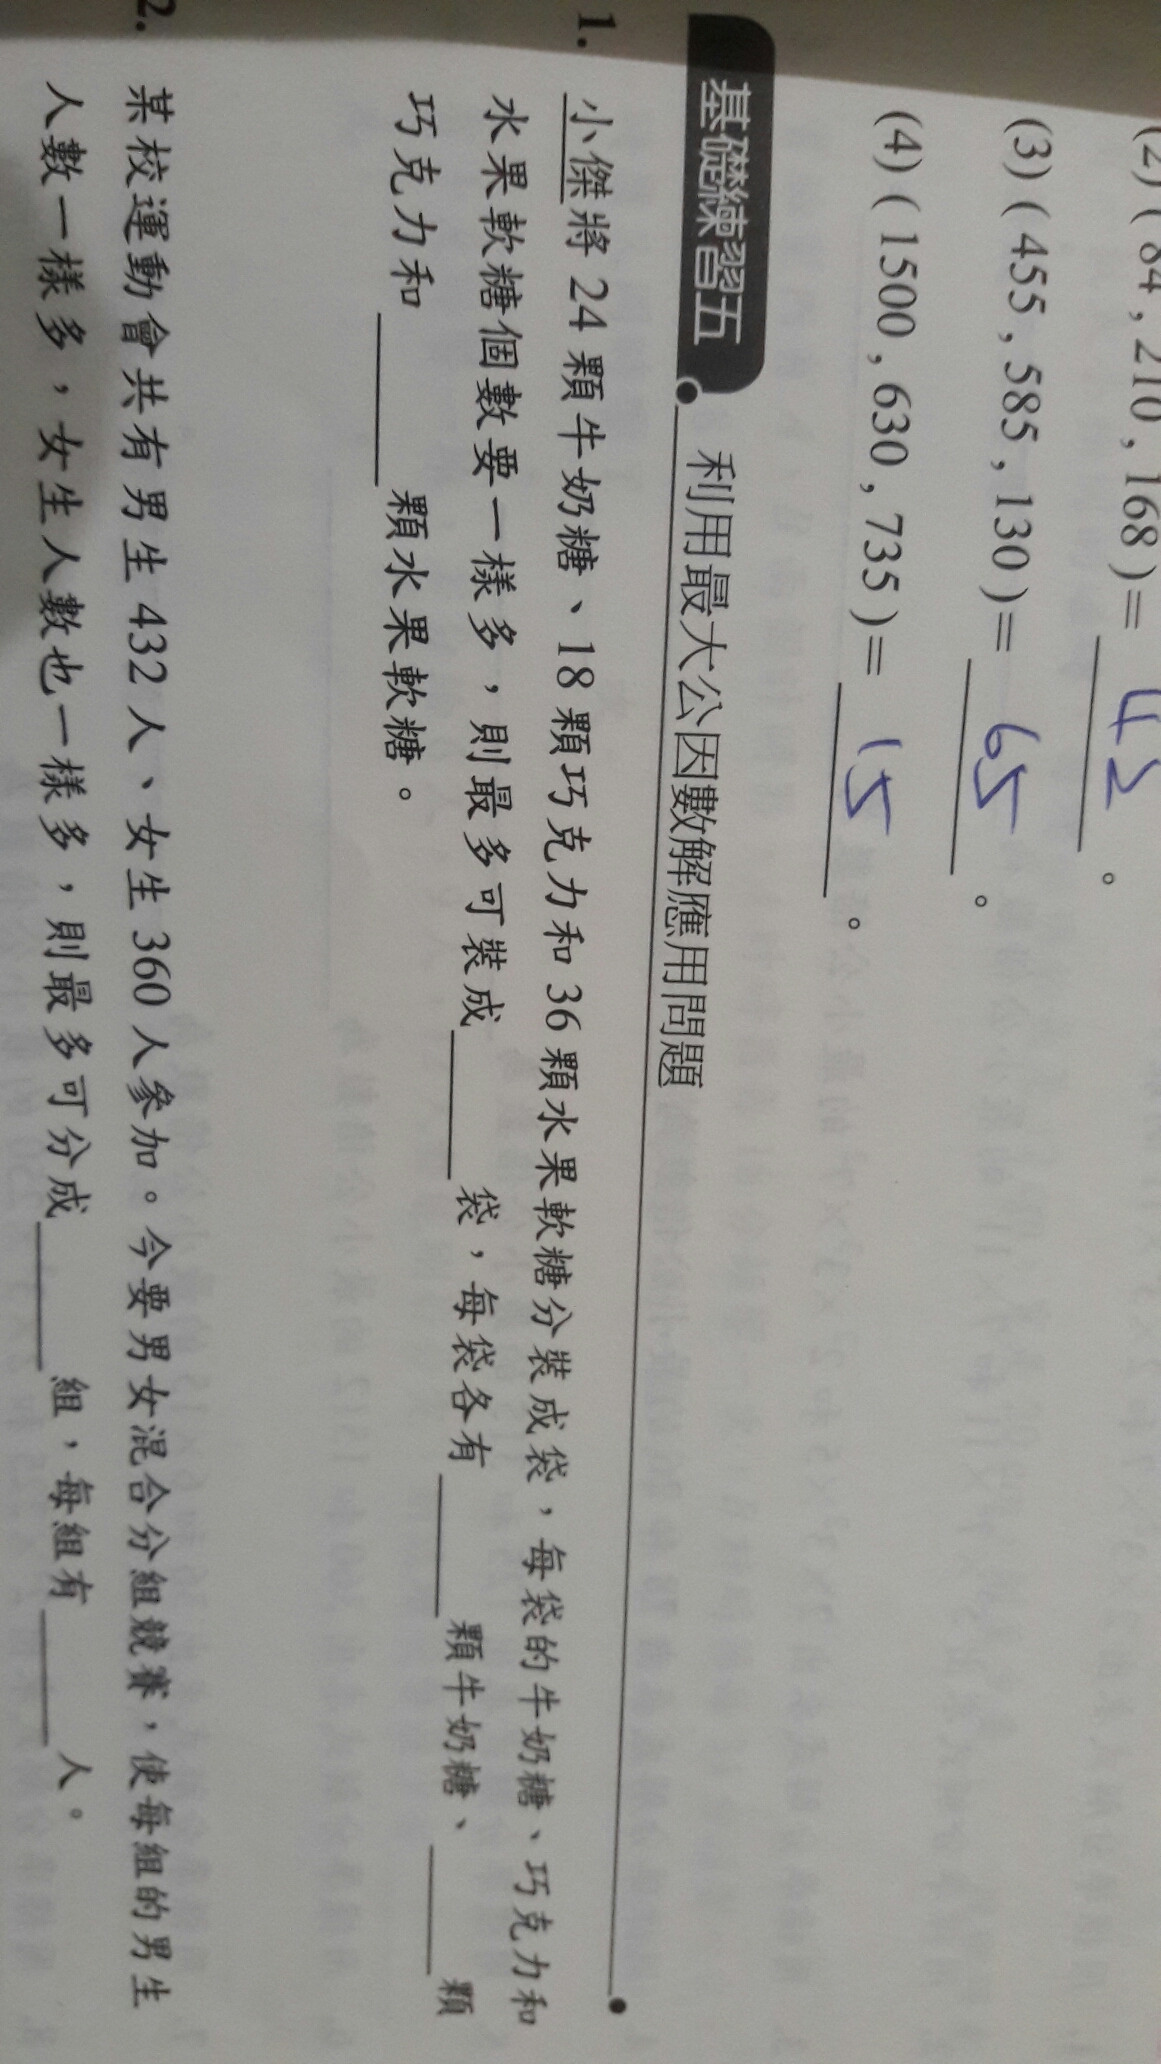 (2) ( 84 , 210 , 168 )= 42 。
(3) ( 455 , 585 , 130 )= 65 。
(4) ( 1500 , 630 , 735 )= 15 。
基礎練習五 利用最大公因數解應用問題
1. 小傑將 24 顆牛奶糖、18 顆巧克力和 36 顆水果軟糖分裝成袋，每袋的牛奶糖、巧克力和
水果軟糖個數要一樣多，則最多可裝成______袋，每袋各有______顆牛奶糖、______顆
巧克力和______顆水果軟糖。
2. 某校運動會共有男生 432 人、女生 360 人參加。今要男女混合分組競賽，使每組的男生
人數一樣多，女生人數也一樣多，則最多可分成______組，每組有______人。